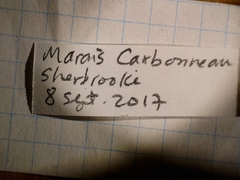 Marais Carbonneau
Sherbrooke
8 sept. 2017